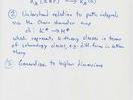 ② Understand relation to path integrals
via the Chern character map
ch: K* → H*
which represents K-theory classes in terms
of cohomology classes, e.g. diff. forms in deRham
theory
③ Generalize to higher dimensions